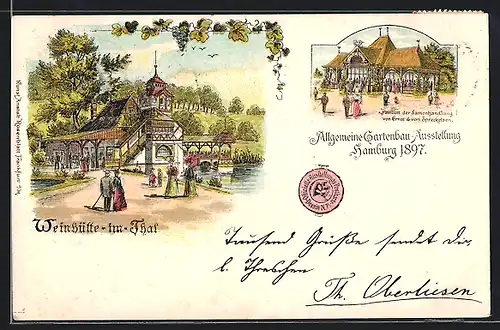 Pavillon der Samenhandlung
von Ernst & von Spreckelsen.
Allgemeine Gartenbau-Ausstellung
Hamburg 1897.
Weinhütte-im-Thal
Tausend Grüße sendet Dir,
l. Threschen
Th. Oberliesen